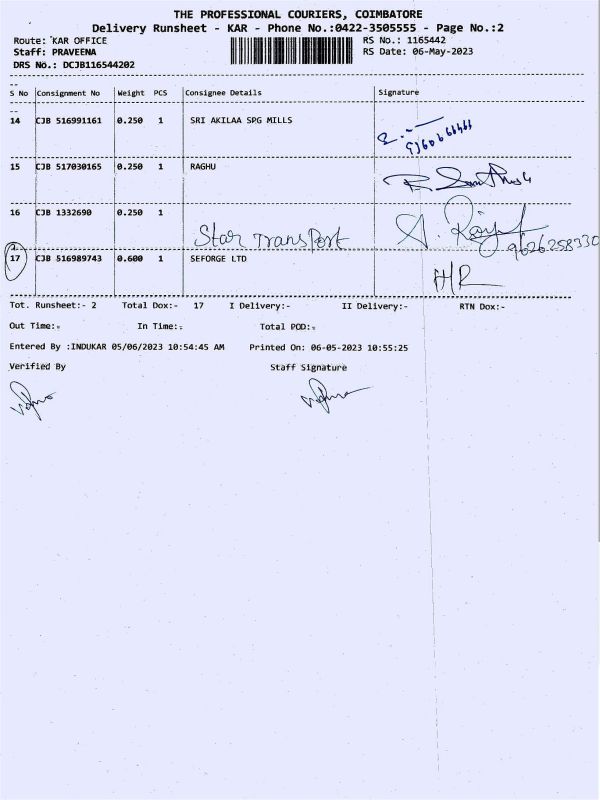 THE PROFESSIONAL COURIERS, COIMBATORE
Delivery Runsheet - KAR - Phone No.:0422-3505555 - Page No.:2
Route: KAR OFFICE RS No.: 1165442
Staff: PRAVEENA RS Date: 06-May-2023
DRS No.: DCJB116544202
S No Consignment No Weight PCS Consignee Details Signature
14 CJB 516991161 0.250 1 SRI AKILAA SPG MILLS
15 CJB 517030165 0.250 1 RAGHU
16 CJB 1332690 0.250 1
Star Transport
9626258330
17 CJB 516989743 0.600 1 SEFORGE LTD
HR
Tot. Runsheet:- 2 Total Dox:- 17 I Delivery:- II Delivery:- RTN Dox:-
Out Time:- In Time:- Total POD:-
Entered By :INDUKAR 05/06/2023 10:54:45 AM Printed On: 06-05-2023 10:55:25
Verified By Staff Signature